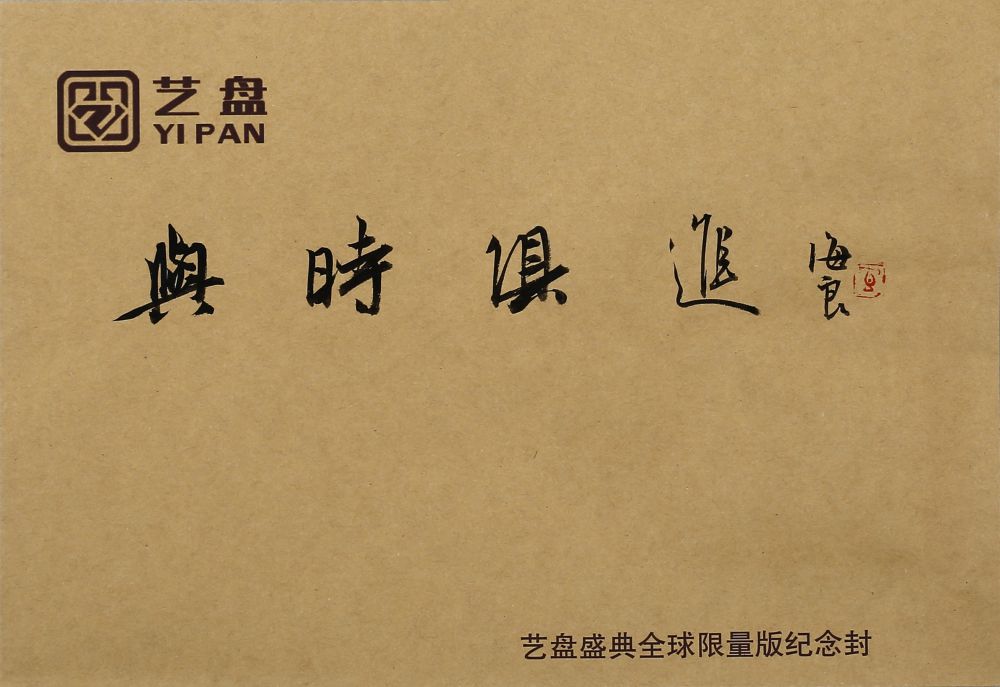 艺盘
YI PAN
與時俱進
海良
艺盘盛典全球限量版纪念封